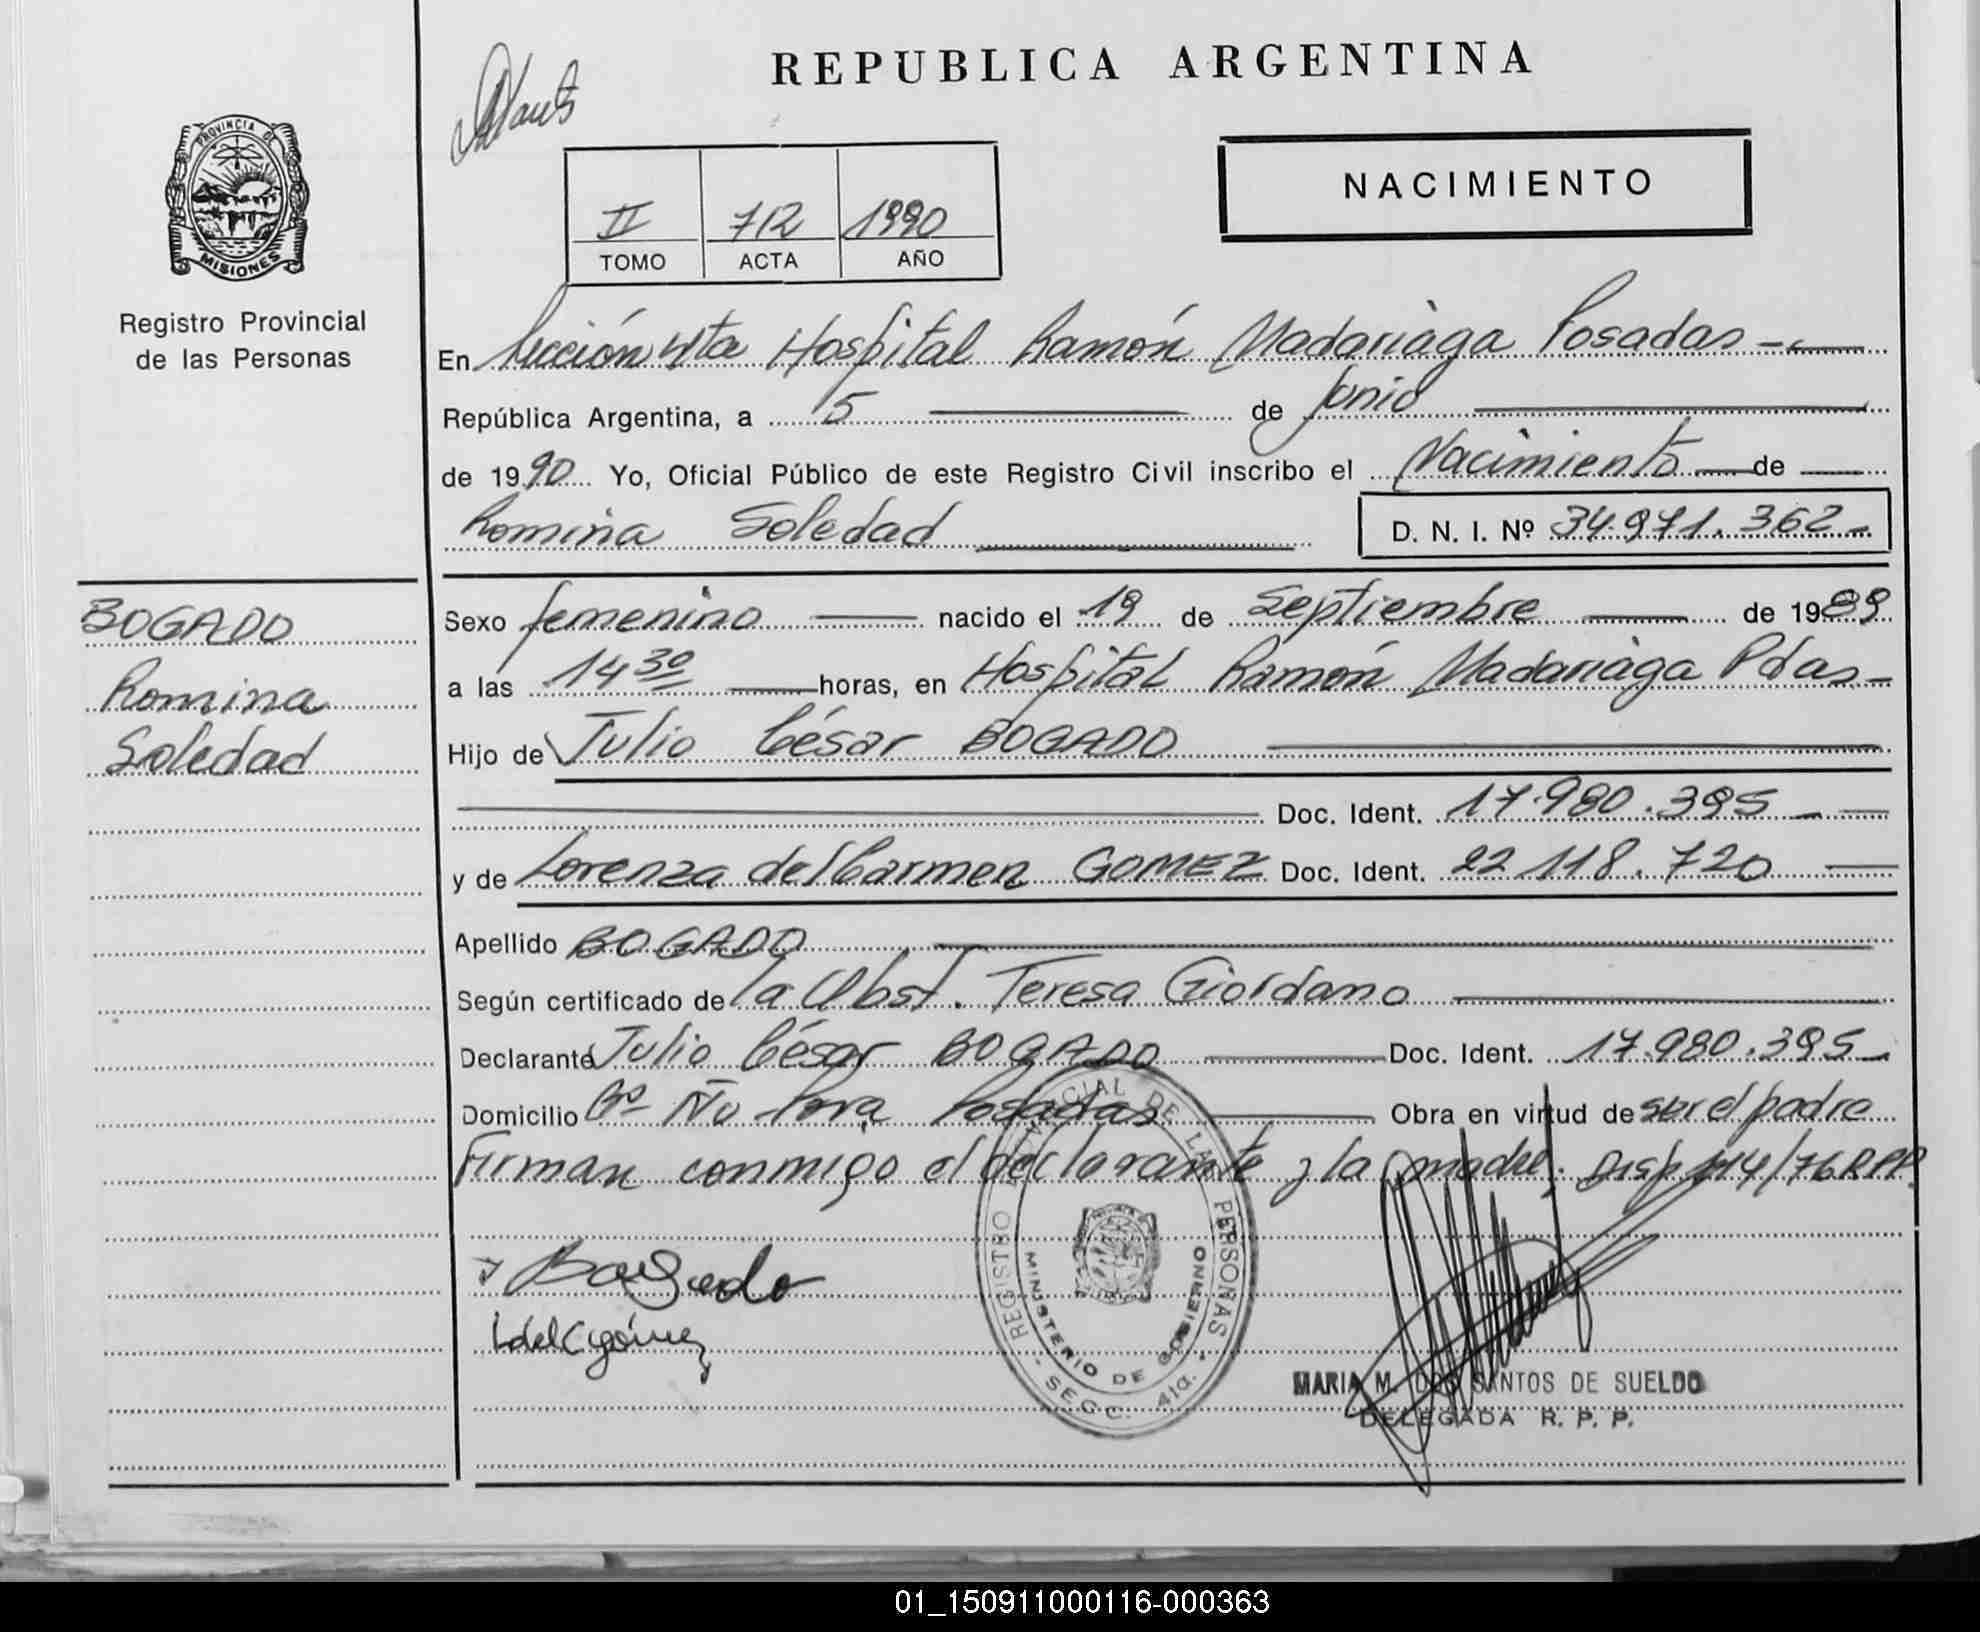 REPUBLICA ARGENTINA
NACIMIENTO
II 712 1990
TOMO ACTA AÑO
PROVINCIA DE
MISIONES
Registro Provincial
de las Personas
En Sección 4ta Hospital Ramón Madariaga Posadas
República Argentina, a 5 de junio
de 1990 Yo, Oficial Público de este Registro Civil inscribo el Nacimiento de
Romina Soledad D. N. I. Nº 34.971.362
BOGADO
Romina
Soledad
Sexo femenino nacido el 19 de Septiembre de 1989
a las 14 30 horas, en Hospital Ramón Madariaga Pdas
Hijo de Julio César BOGADO
Doc. Ident. 17.980.395
y de Lorenza del Carmen GOMEZ Doc. Ident. 22 118.720
Apellido BOGADO
Según certificado de la Obst. Teresa Giordano
Declarante Julio César BOGADO Doc. Ident. 17.980.395
Domicilio Bº Ñu Pora Posadas Obra en virtud de ser el padre
Firman conmigo el declarante y la madre. Disp. 114/76 RPP.
Bogado
L del C gómez
REGISTRO PROVINCIAL DE LAS PERSONAS
MINISTERIO DE GOBIERNO
- SECC. 4ta. -
MARIA M. DOS SANTOS DE SUELDO
DELEGADA R. P. P.
01_150911000116-000363